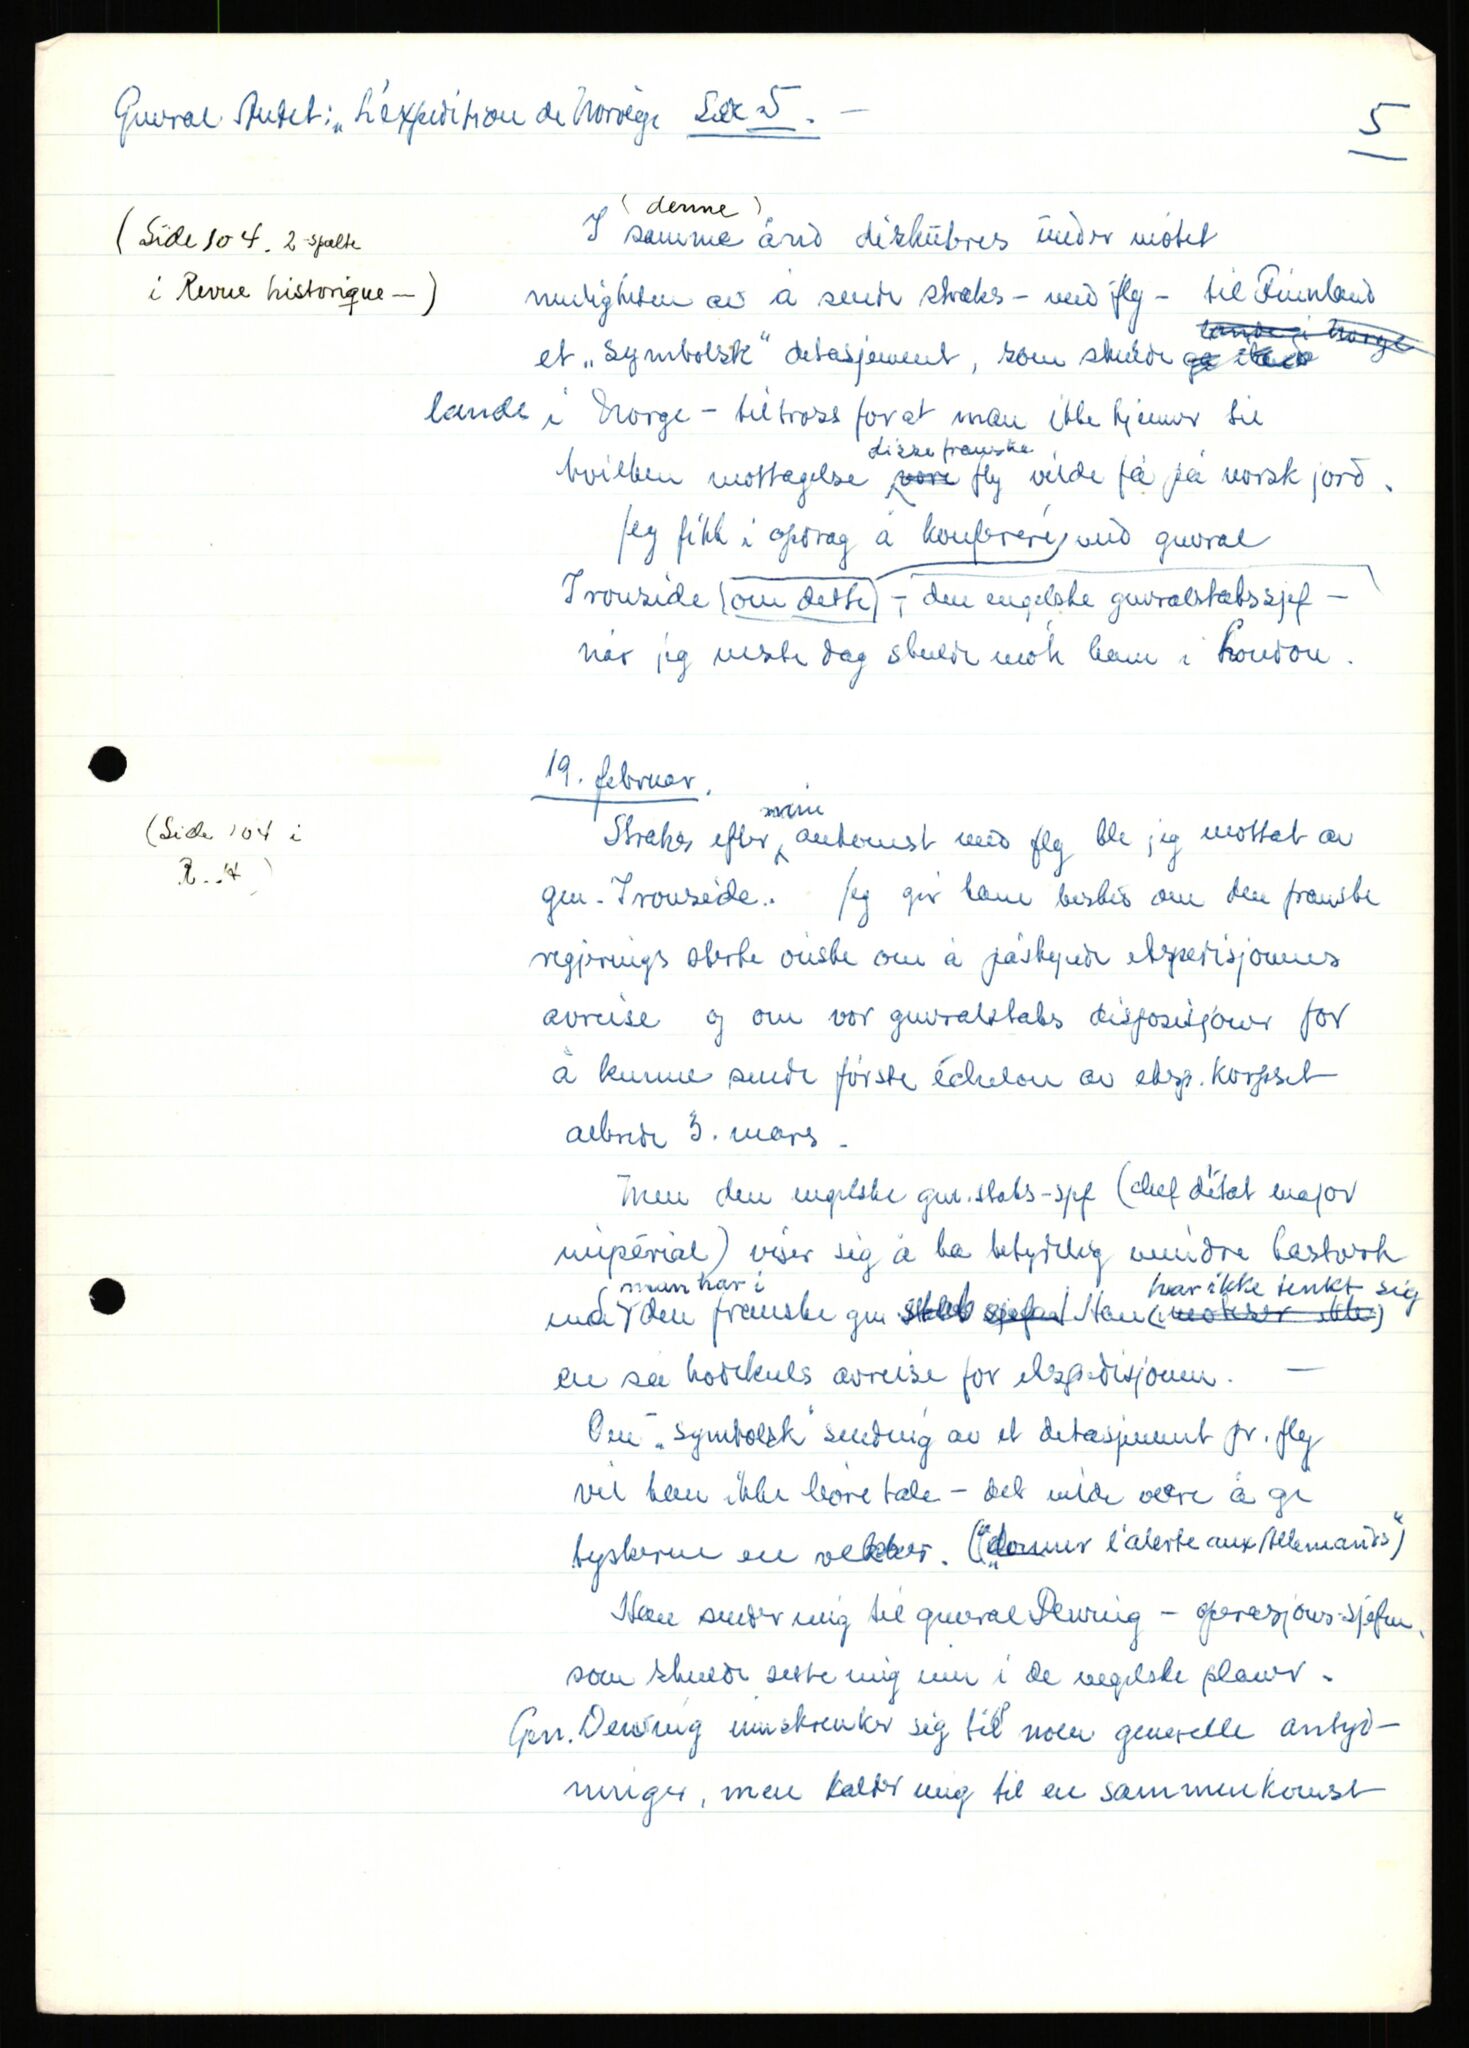 General Audet: „L'expedition de Norvège Side 5. —
5
(Side 104. 2-spalte
i Revue historique —)
(denne)
I samme ånd diskuteres under møtet
muligheten av å sende straks - med fly - til Finnland
et „symbolsk" detasjement, som skulde
lande i Norge
lande i Norge - tiltross for at man ikke kjenner til
disse franske
hvilken mottagelse våre fly vilde få på norsk jord.
Jeg fikk i opdrag å konferere med general
Ironside (om dette) - den engelske generalstabssjef -
når jeg neste dag skulde møte ham i London.
19. februar.
(Side 104 i
R..H)
min
Straks efter ankomst med fly ble jeg mottat av
gen. Ironside. Jeg gir ham beskjed om den franske
regjerings sterke ønske om å påskynde ekspedisjonens
avreise og om vor generalstabs disposisjoner for
å kunne sende første échelon av eksp. korpset
allerede 3. mars.
Men den engelske gen.stabs-sjef (chef d'état major
impérial) viser sig å ha betydelig mindre hastverk
man har i
har ikke tenkt sig
end den franske gen. stab sjefen Han
en så hodekuls avreise for ekspedisjonen. —
Om „symbolsk" sending av et detasjement pr. fly
vil han ikke høre tale - det vilde være å gi
tyskerne en vekker. („donner l'alerte aux Allemands")
Han sender mig til general Dewing - operasjons-sjefen,
som skulde sette mig inn i de engelske planer.
Gen. Dewing innskrenker sig til noen generelle antyd-
ninger, men kalder mig til en sammenkomst